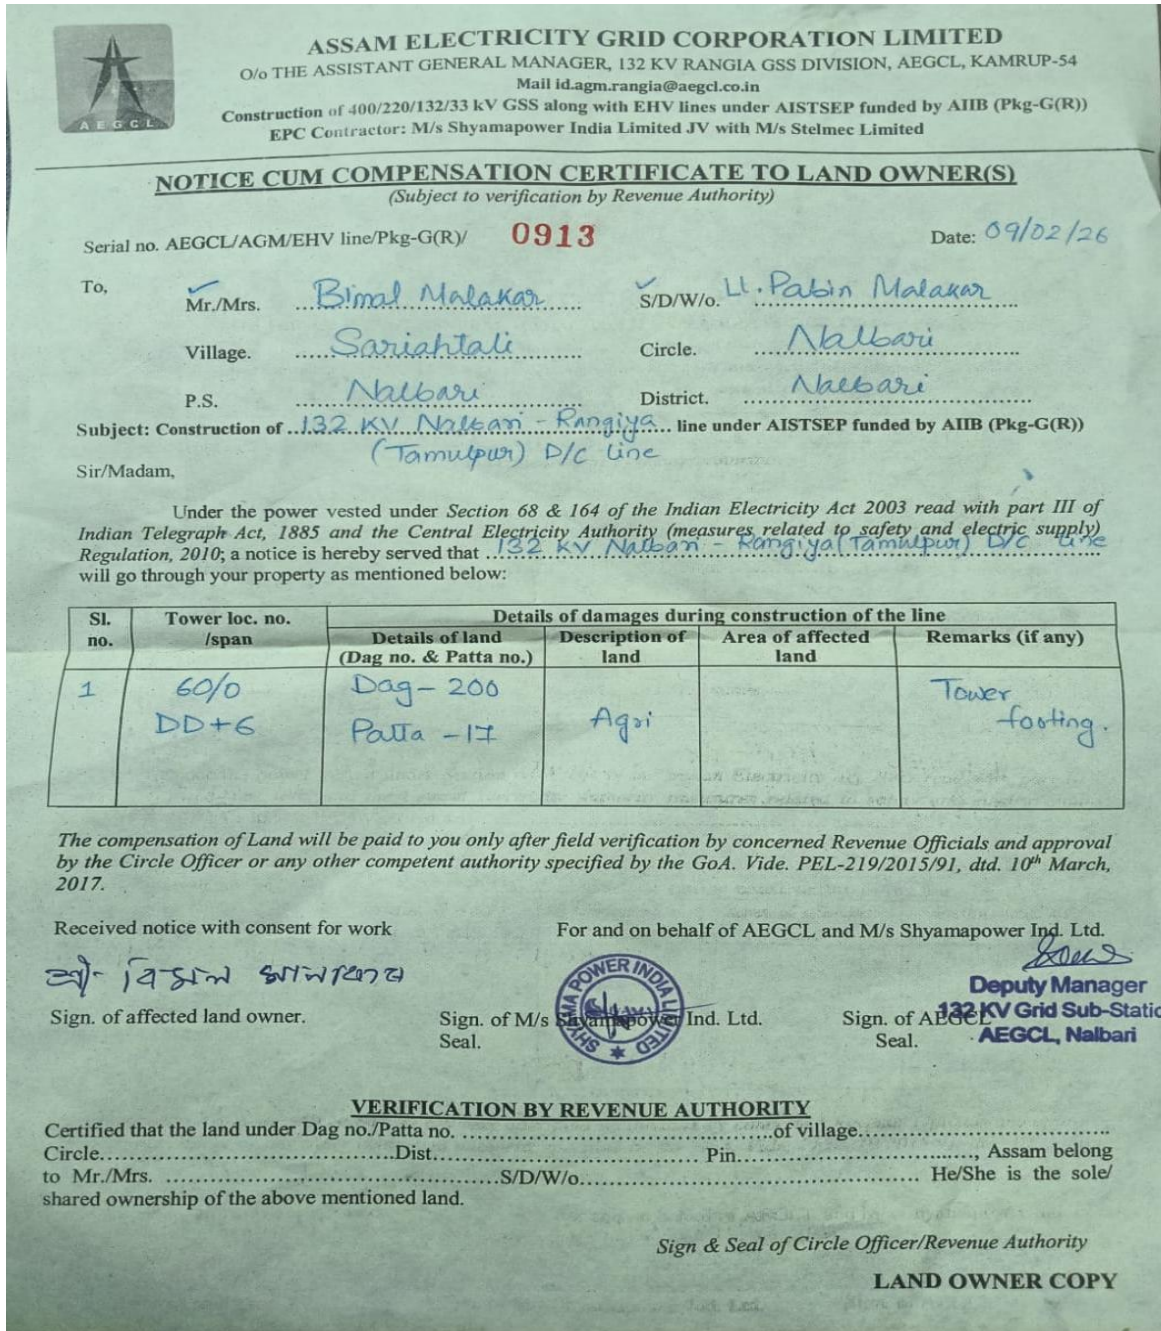 AEGCL
ASSAM ELECTRICITY GRID CORPORATION LIMITED
O/o THE ASSISTANT GENERAL MANAGER, 132 KV RANGIA GSS DIVISION, AEGCL, KAMRUP-54
Mail id.agm.rangia@aegcl.co.in
Construction of 400/220/132/33 kV GSS along with EHV lines under AISTSEP funded by AIIB (Pkg-G(R))
EPC Contractor: M/s Shyamapower India Limited JV with M/s Stelmec Limited
NOTICE CUM COMPENSATION CERTIFICATE TO LAND OWNER(S)
(Subject to verification by Revenue Authority)
Serial no. AEGCL/AGM/EHV line/Pkg-G(R)/ 0913 Date: 09/02/26
To,
Mr./Mrs. Bimal Malakar S/D/W/o. Lt. Pabin Malakar
Village. Sariahtali Circle. Nalbari
P.S. Nalbari District. Nalbari
Subject: Construction of 132 KV Nalbari - Rangiya line under AISTSEP funded by AIIB (Pkg-G(R))
(Tamulpur) D/C line
Sir/Madam,
Under the power vested under Section 68 & 164 of the Indian Electricity Act 2003 read with part III of
Indian Telegraph Act, 1885 and the Central Electricity Authority (measures related to safety and electric supply)
Regulation, 2010; a notice is hereby served that 132 KV Nalbari - Rangiya (Tamulpur) D/C line
will go through your property as mentioned below:
Sl. no. Tower loc. no. /span Details of damages during construction of the line
Details of land (Dag no. & Patta no.) Description of land Area of affected land Remarks (if any)
1 60/0 Dag- 200 Tower
DD+6 Patta -17 Agri footing.
The compensation of Land will be paid to you only after field verification by concerned Revenue Officials and approval
by the Circle Officer or any other competent authority specified by the GoA. Vide. PEL-219/2015/91, dtd. 10th March,
2017.
Received notice with consent for work For and on behalf of AEGCL and M/s Shyamapower Ind. Ltd.
শ্রী- বিমল মালাকাৰ
Deputy Manager
132 KV Grid Sub-Static
AEGCL, Nalbari
SHYAMA POWER INDIA LIMITED
Sign. of affected land owner. Sign. of M/s Shyamapower Ind. Ltd. Sign. of AEGCL
Seal. Seal.
VERIFICATION BY REVENUE AUTHORITY
Certified that the land under Dag no./Patta no. ................ of village................
Circle................Dist................ Pin................, Assam belong
to Mr./Mrs. ................S/D/W/o................ He/She is the sole/
shared ownership of the above mentioned land.
Sign & Seal of Circle Officer/Revenue Authority
LAND OWNER COPY